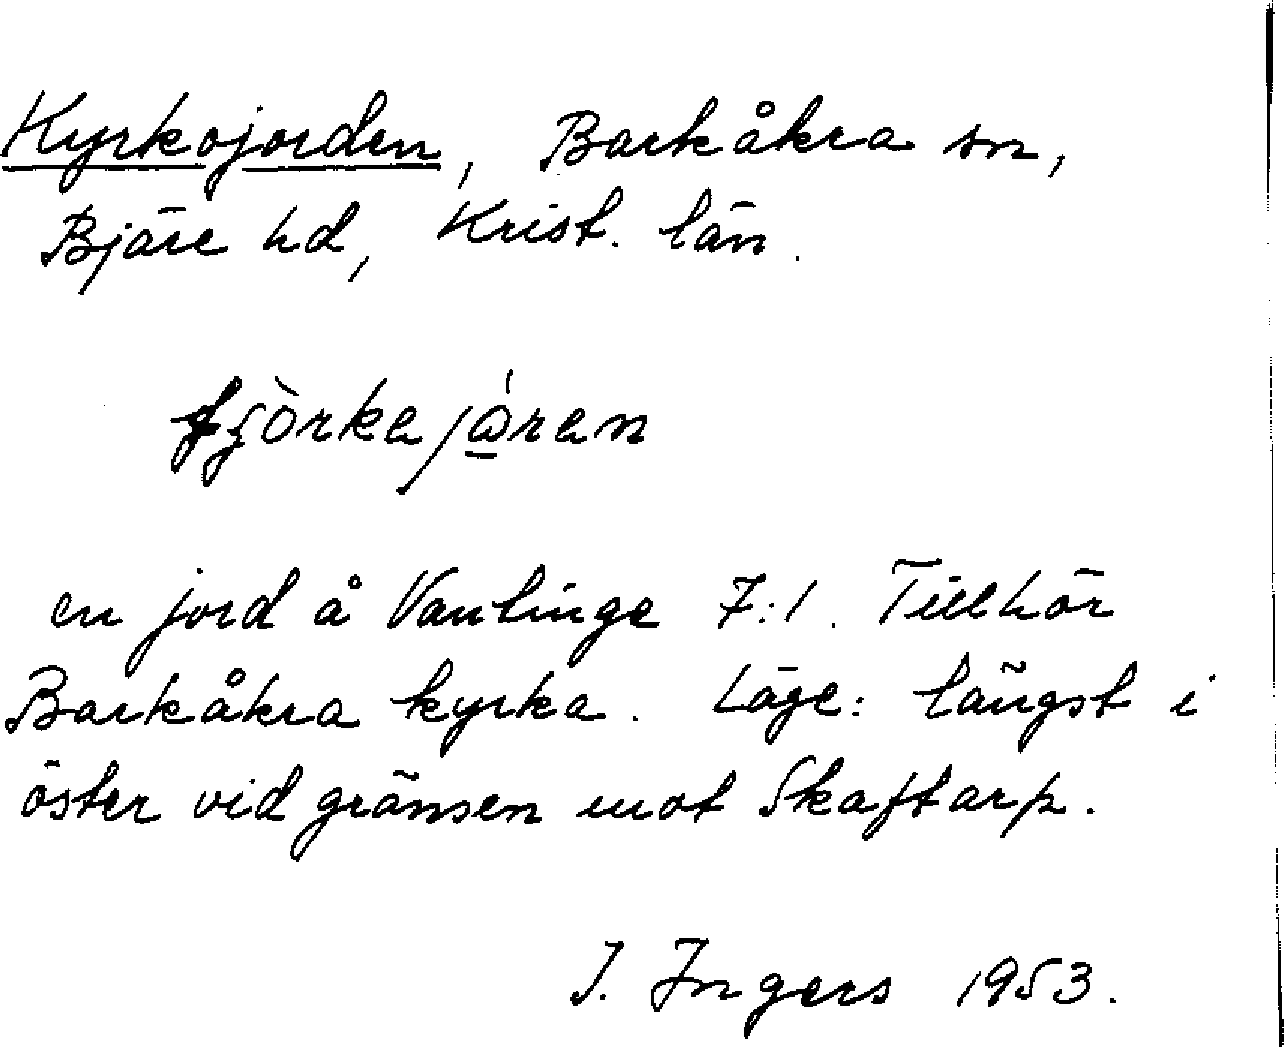 Kyrkojorden, Barkåkra sn,
Bjäre hd, Krist. län.
en jord å Vantinge 7:1. Tillhör
Barkåkra kyrka. Läge: längst i
öster vid gränsen mot Skaftarp.
I. Ingers 1953.